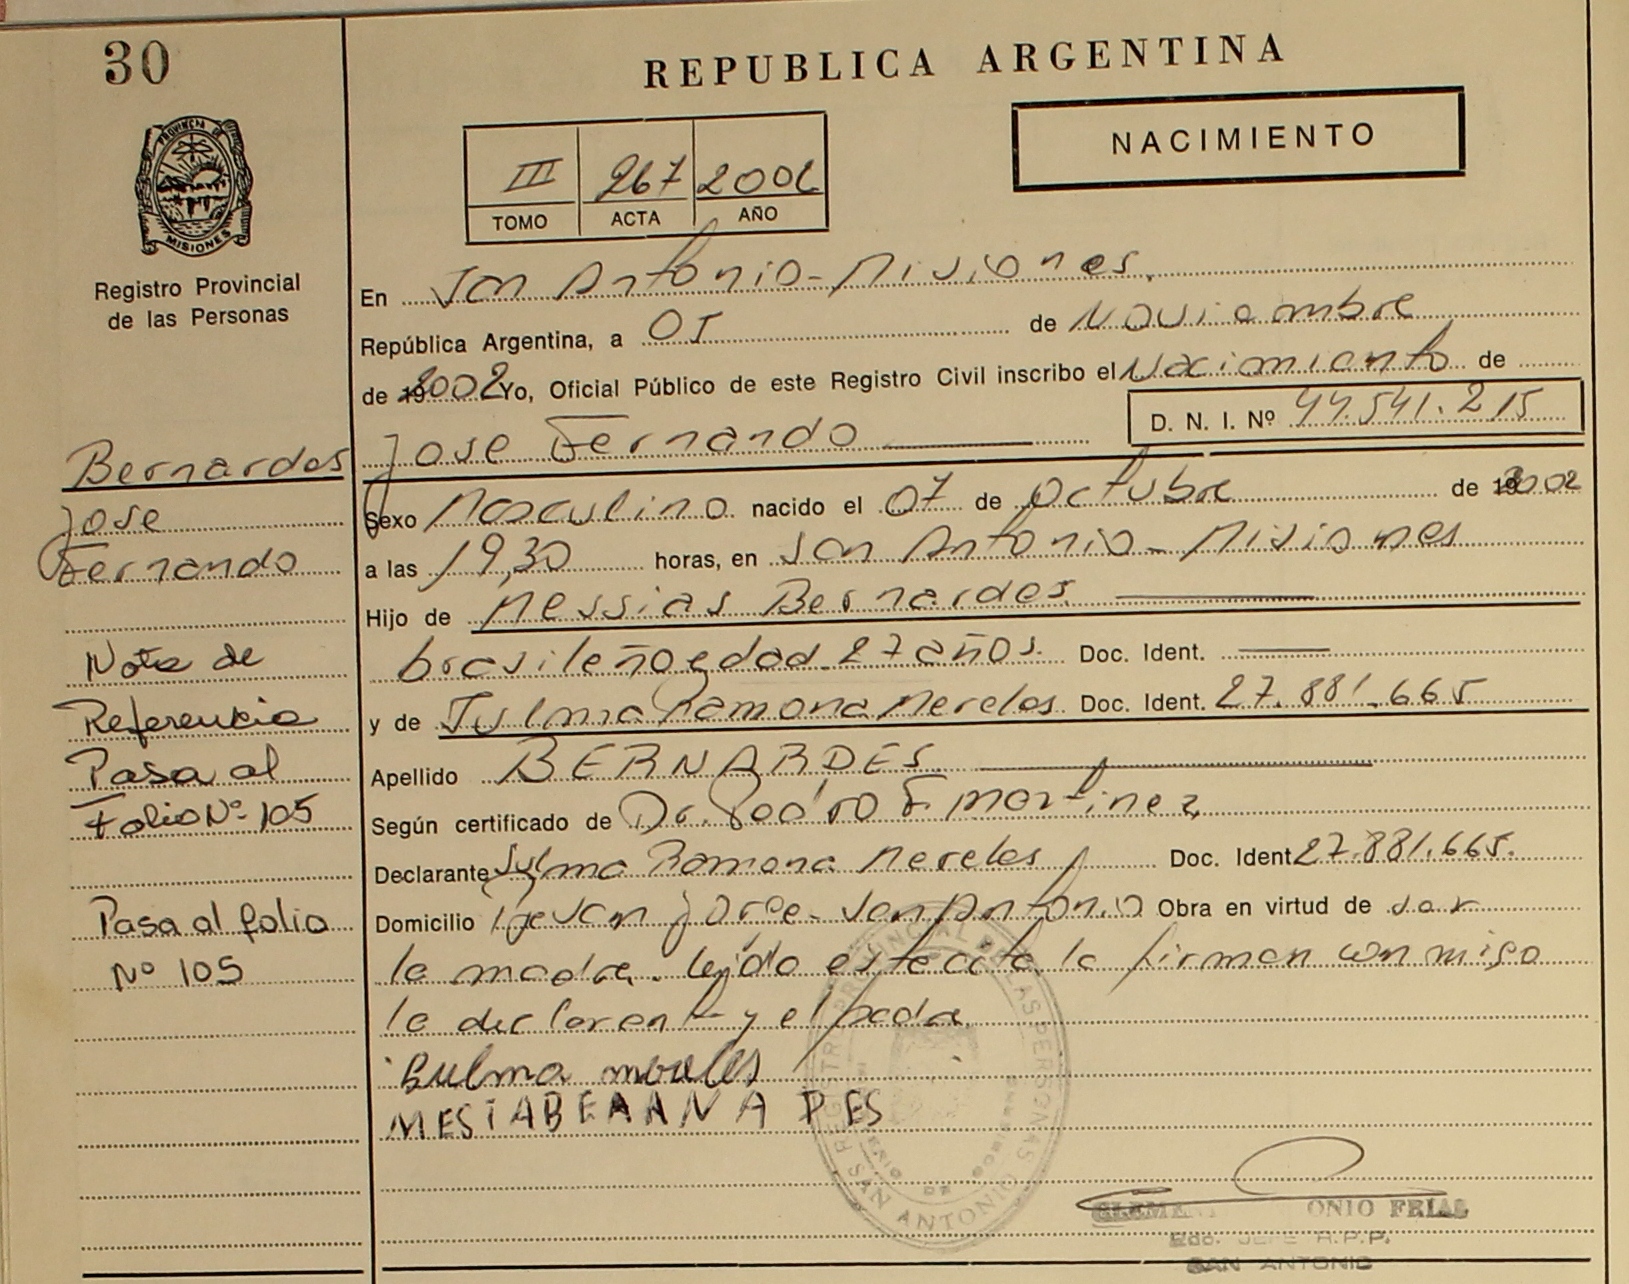 30
REPUBLICA ARGENTINA
NACIMIENTO
III 267 2002
TOMO ACTA AÑO
PROVINCIA DE MISIONES
Registro Provincial
de las Personas
En San Antonio - Misiones.
República Argentina, a 01 de Noviembre
de 19 2002 Yo, Oficial Público de este Registro Civil inscribo el Nacimiento de
D. N. I. Nº 44.541.215
Jose Fernando
Bernardes
Jose
Fernando
Sexo Masculino nacido el 07 de Octubre de 19 2002
a las 19,30 horas, en San Antonio - Misiones
Hijo de Messias Bernardes
brasileño edad 27 años. Doc. Ident.
y de Sulma Ramona Mereles Doc. Ident. 27.881.665
Apellido BERNARDES
Según certificado de Dr. Pedro F. Martinez
Declarante Sulma Ramona Mereles Doc. Ident 27.881.665.
Domicilio San Jorge - San Antonio Obra en virtud de ser
la madre. Leída este acta la firman conmigo
la declarante y el padre.
Nota de
Referencia
Pasa al
Folio Nº 105
Pasa al folio
Nº 105
Sulma
MESIABEAANA DES
REGISTRO PROVINCIAL DE LAS PERSONAS
SAN ANTONIO
ONIO FRIAS
JEFE R.P.P.
SAN ANTONIO